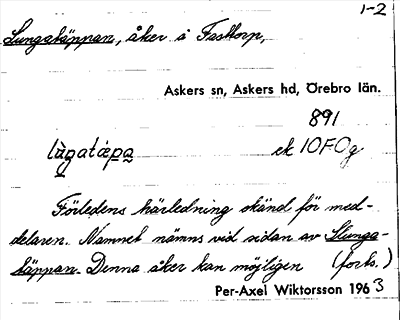 1-2
Lungatäppan, åker å Fasttorp,
Askers sn, Askers hd, Örebro län.
891
ek 10F0g
Förledens härledning okänd för med-
delaren. Namnet nämns vid sidan av Slunga-
täppan. Denna åker kan möjligen (forts.)
Per-Axel Wiktorsson 1963